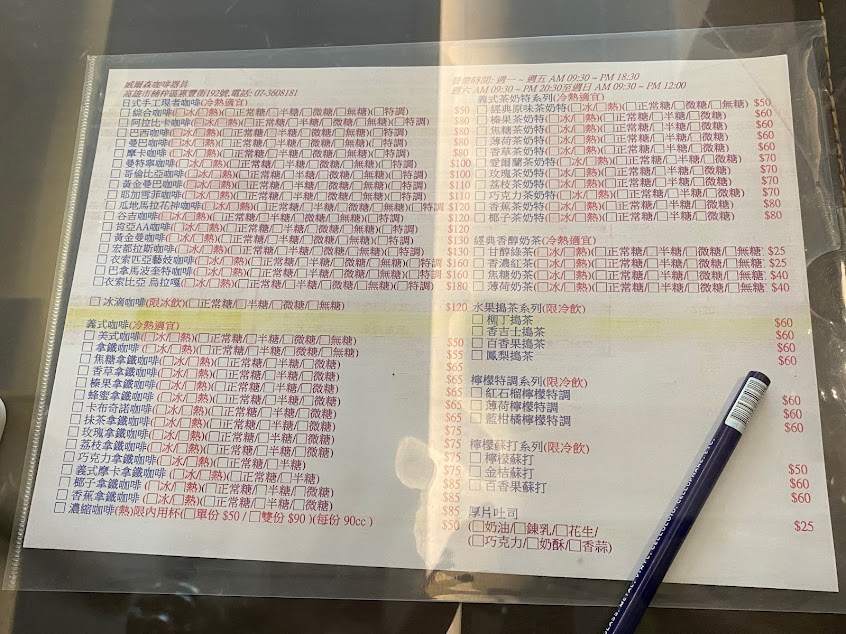 威爾森咖啡器具
高雄市楠梓區惠豐街192號.電話: 07-3608181
日式手工現煮咖啡(冷熱適宜)
□ 綜合咖啡(□冰/□熱)(□正常糖/□半糖/□微糖/□無糖)(□特調) $50
□ 阿拉比卡咖啡(□冰/□熱)(□正常糖/□半糖/□微糖/□無糖)(□特調) $80
□ 巴西咖啡(□冰/□熱)(□正常糖/□半糖/□微糖/□無糖)(□特調) $80
□ 曼巴咖啡(□冰/□熱)(□正常糖/□半糖/□微糖/□無糖)(□特調) $80
□ 摩卡咖啡(□冰/□熱)(□正常糖/□半糖/□微糖/□無糖)(□特調) $80
□ 曼特寧咖啡(□冰/□熱)(□正常糖/□半糖/□微糖/□無糖)(□特調) $100
□ 哥倫比亞咖啡(□冰/□熱)(□正常糖/□半糖/□微糖/□無糖)(□特調) $100
□ 黃金曼巴咖啡(□冰/□熱)(□正常糖/□半糖/□微糖/□無糖)(□特調) $110
□ 耶加雪菲咖啡(□冰/□熱)(□正常糖/□半糖/□微糖/□無糖)(□特調) $110
□ 瓜地馬拉花神咖啡(□冰/□熱)(□正常糖/□半糖/□微糖/□無糖)(□特調) $120
□ 谷吉咖啡(□冰/□熱)(□正常糖/□半糖/□微糖/□無糖)(□特調) $120
□ 肯亞AA咖啡(□冰/□熱)(□正常糖/□半糖/□微糖/□無糖)(□特調) $120
□ 黃金曼咖啡(□冰/□熱)(□正常糖/□半糖/□微糖/□無糖)(□特調) $130
□ 宏都拉斯咖啡(□冰/□熱)(□正常糖/□半糖/□微糖/□無糖)(□特調) $130
□ 衣索匹亞藝妓咖啡(□冰/□熱)(□正常糖/□半糖/□微糖/□無糖)(□特調) $160
□ 巴拿馬波奎特咖啡(□冰/□熱)(□正常糖/□半糖/□微糖/□無糖)(□特調) $160
□ 衣索比亞 烏拉嘎(□冰/□熱)(□正常糖/□半糖/□微糖/□無糖)(□特調) $180
□ 冰滴咖啡(限冰飲)(□正常糖/□半糖/□微糖/□無糖) $120
義式咖啡(冷熱適宜)
□ 美式咖啡(□冰/□熱)(□正常糖/□半糖/□微糖/□無糖) $50
□ 拿鐵咖啡(□冰/□熱)(□正常糖/□半糖/□微糖/□無糖) $55
□ 焦糖拿鐵咖啡(□冰/□熱)(□正常糖/□半糖/□微糖) $65
□ 香草拿鐵咖啡(□冰/□熱)(□正常糖/□半糖/□微糖) $65
□ 榛果拿鐵咖啡(□冰/□熱)(□正常糖/□半糖/□微糖) $65
□ 蜂蜜拿鐵咖啡(□冰/□熱)(□正常糖/□半糖/□微糖) $65
□ 卡布奇諾咖啡(□冰/□熱)(□正常糖/□半糖/□微糖) $65
□ 抹茶拿鐵咖啡(□冰/□熱)(□正常糖/□半糖/□微糖) $75
□ 玫瑰拿鐵咖啡(□冰/□熱)(□正常糖/□半糖/□微糖) $75
□ 荔枝拿鐵咖啡(□冰/□熱)(□正常糖/□半糖/□微糖) $75
□ 巧克力拿鐵咖啡(□冰/□熱)(□正常糖/□半糖) $75
□ 義式摩卡拿鐵咖啡(□冰/□熱)(□正常糖/□半糖/□微糖) $85
□ 椰子拿鐵咖啡(□冰/□熱)(□正常糖/□半糖/□微糖) $85
□ 香蕉拿鐵咖啡(□冰/□熱)(□正常糖/□半糖/□微糖) $85
□ 濃縮咖啡(熱)限內用杯(□單份 $50 / □雙份 $90 )(每份 90cc ) $50
營業時間: 週一 ~ 週五 AM 09:30 ~ PM 18:30
週六 AM 09:30 ~ PM 20:30至週日 AM 09:30 ~ PM 12:00
義式茶奶特系列(冷熱適宜)
□ 經典原味茶奶特(□冰/□熱)(□正常糖/□微糖/□無糖) $50
□ 榛果茶奶特(□冰/□熱)(□正常糖/□半糖/□微糖) $60
□ 焦糖茶奶特(□冰/□熱)(□正常糖/□半糖/□微糖) $60
□ 薄荷茶奶特(□冰/□熱)(□正常糖/□半糖/□微糖) $60
□ 香草茶奶特(□冰/□熱)(□正常糖/□半糖/□微糖) $60
□ 愛爾蘭茶奶特(□冰/□熱)(□正常糖/□半糖/□微糖) $70
□ 玫瑰茶奶特(□冰/□熱)(□正常糖/□半糖/□微糖) $70
□ 荔枝茶奶特(□冰/□熱)(□正常糖/□半糖/□微糖) $70
□ 巧克力茶奶特(□冰/□熱)(□正常糖/□半糖/□微糖) $70
□ 香蕉茶奶特(□冰/□熱)(□正常糖/□半糖/□微糖) $80
□ 椰子茶奶特(□冰/□熱)(□正常糖/□半糖/□微糖) $80
經典香醇奶茶(冷熱適宜)
□ 甘醇綠茶(□冰/□熱)(□正常糖/□半糖/□微糖/□無糖) $25
□ 香濃紅茶(□冰/□熱)(□正常糖/□半糖/□微糖/□無糖) $25
□ 焦糖奶茶(□冰/□熱)(□正常糖/□半糖/□微糖/□無糖) $40
□ 薄荷奶茶(□冰/□熱)(□正常糖/□半糖/□微糖/□無糖) $40
水果搗茶系列(限冷飲)
□ 柳丁搗茶 $60
□ 香吉士搗茶 $60
□ 百香果搗茶 $60
□ 鳳梨搗茶 $60
檸檬特調系列(限冷飲)
□ 紅石榴檸檬特調 $60
□ 薄荷檸檬特調 $60
□ 藍柑橘檸檬特調 $60
檸檬蘇打系列(限冷飲)
□ 檸檬蘇打 $50
□ 金桔蘇打 $60
□ 百香果蘇打 $60
厚片吐司
(□奶油/□鍊乳/□花生/ $25
(□巧克力/□奶酥/□香蒜)
GLASS, METAL, VINYL, CELLULOID, CELLOPHAN, ETC.